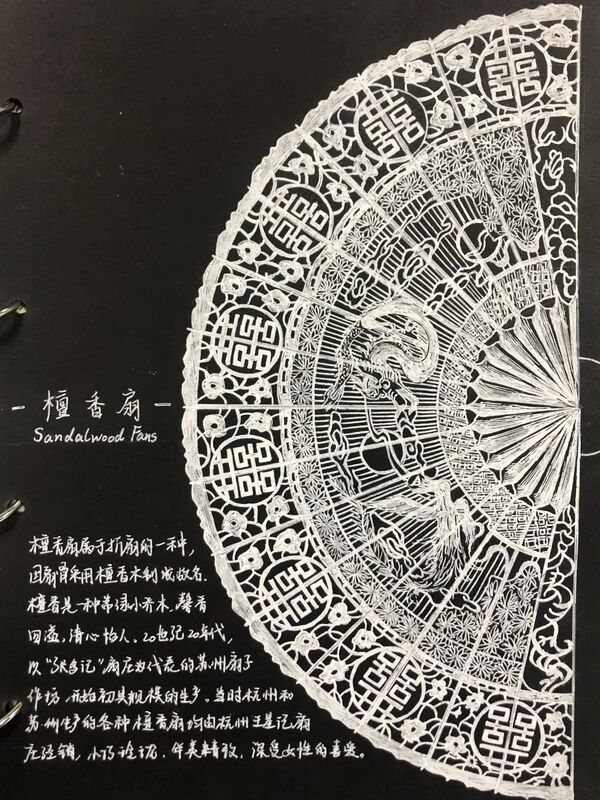 囍
囍
囍
囍
囍
囍
囍
囍
- 檀香扇 -
Sandalwood Fans
檀香扇属于折扇的一种,
因扇骨采用檀香木制成故名.
檀香是一种常绿小乔木,馨香
回溢,清心怡人。20世纪20年代,
以“张多记”扇庄为代表的苏州扇子
作坊,开始初具规模的生产。当时杭州和
苏州生产的各种檀香扇均由杭州王星记扇
庄经销,小巧玲珑,华美精致,深受女性的喜爱。